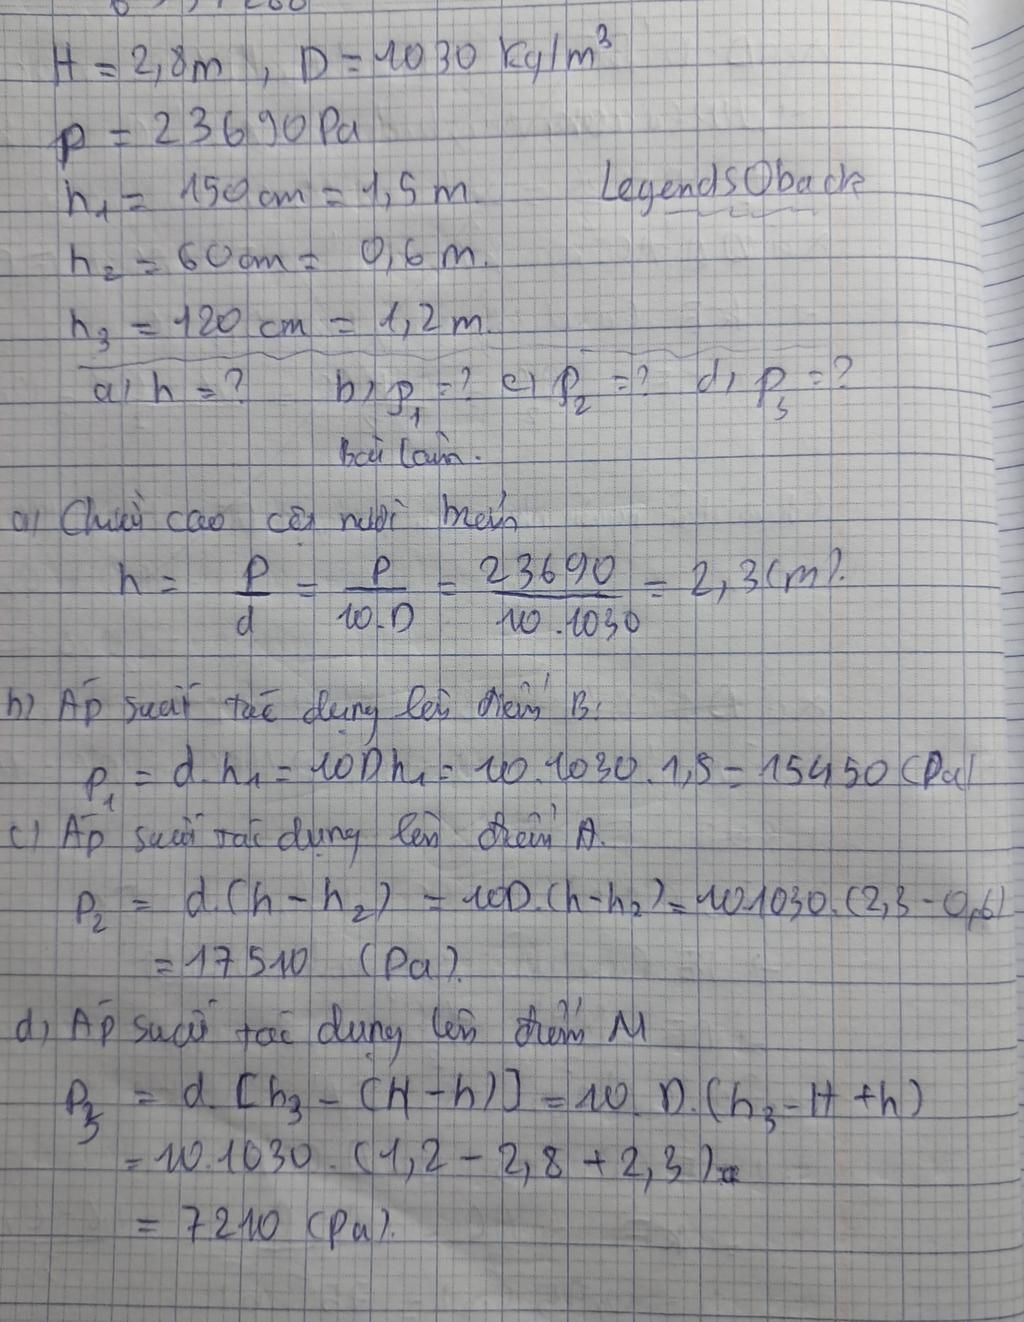 H = 2,8m , D = 1030 Kg/m³
p = 23690 Pa
h₁ = 150cm = 1,5 m. LegendsOback
h₂ = 60cm = 0,6 m.
h₃ = 120 cm = 1,2 m.
a) h = ? b) p₁ = ? c) p₂ = ? d) p₃ = ?
Bài làm.
a) Chiều cao cột nước biển
h = p/d = p/10.D = 23690/10.1030 = 2,3 (m).
b) Áp suất tác dụng lên điểm B:
p₁ = d.h₁ = 10Dh₁ = 10.1030.1,5 = 15450 (Pa)
c) Áp suất tác dụng lên điểm A.
p₂ = d.(h - h₂) = 10D.(h-h₂) = 10.1030.(2,3 - 0,6)
= 17510 (Pa).
d) Áp suất tác dụng lên điểm M
p₃ = d.[h₃ - (H - h)] = 10.D.(h₃ - H + h)
= 10.1030.(1,2 - 2,8 + 2,3)
= 7210 (Pa).